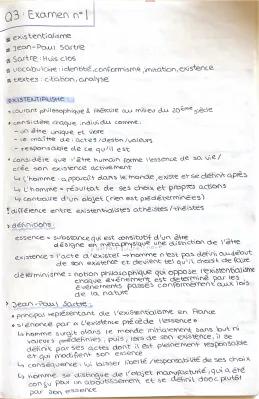 Q3: Examen n°1
existentialisme
Jean-Paul Sartre
Sartre: Huis clos
vocabulaire: identité, conformisme, imitation, existence
textes: citation, analyse
EXISTENTIALISME:
courant philosophique & littéraire au milieu du 20ème siècle
considère chaque individu comme:
- un être unique et libre
- le maître de: actes/destin/valeurs
- responsable de ce qu'il est
considère que l'être humain forme l'essence de sa vie/
crée son existence activement
↳ l'homme: apparaît dans le monde, existe et se définit après
↳ l'homme = résultat de ses choix et propres actions
↳ contraire d'un objet (rien est prédéterminées)
! différence entre existentialistes athéistes/théistes
définitions:
essence = substance qui est constitutif d'un être
désigne en métaphysique une distinction de l'être
existence = l'acte d'exister → homme n'est pas défini au début
de son existence et devient tel qu'il choisit de faire
déterminisme = notion philosophique qui oppose l'existentialisme
chaque évènement est déterminé par les
évènements passés conformément aux lois
de la nature
Jean-Paul Sartre:
principal représentant de l'existentialisme en France
s'énonce par « l'existence précède l'essence »
↳ homme surgit dans le monde initialement sans but ni
valeurs prédéfinies, puis, lors de son existence, il se
définit par ses actes dont il est pleinement responsable
et qui modifient son essence
↳ conséquence: lui laisser liberté/responsabilité de ses choix
↳ homme se distingue de l'objet manufacturé, qui a été
conçu pour un aboutissement et se définit donc plutôt
par son essence